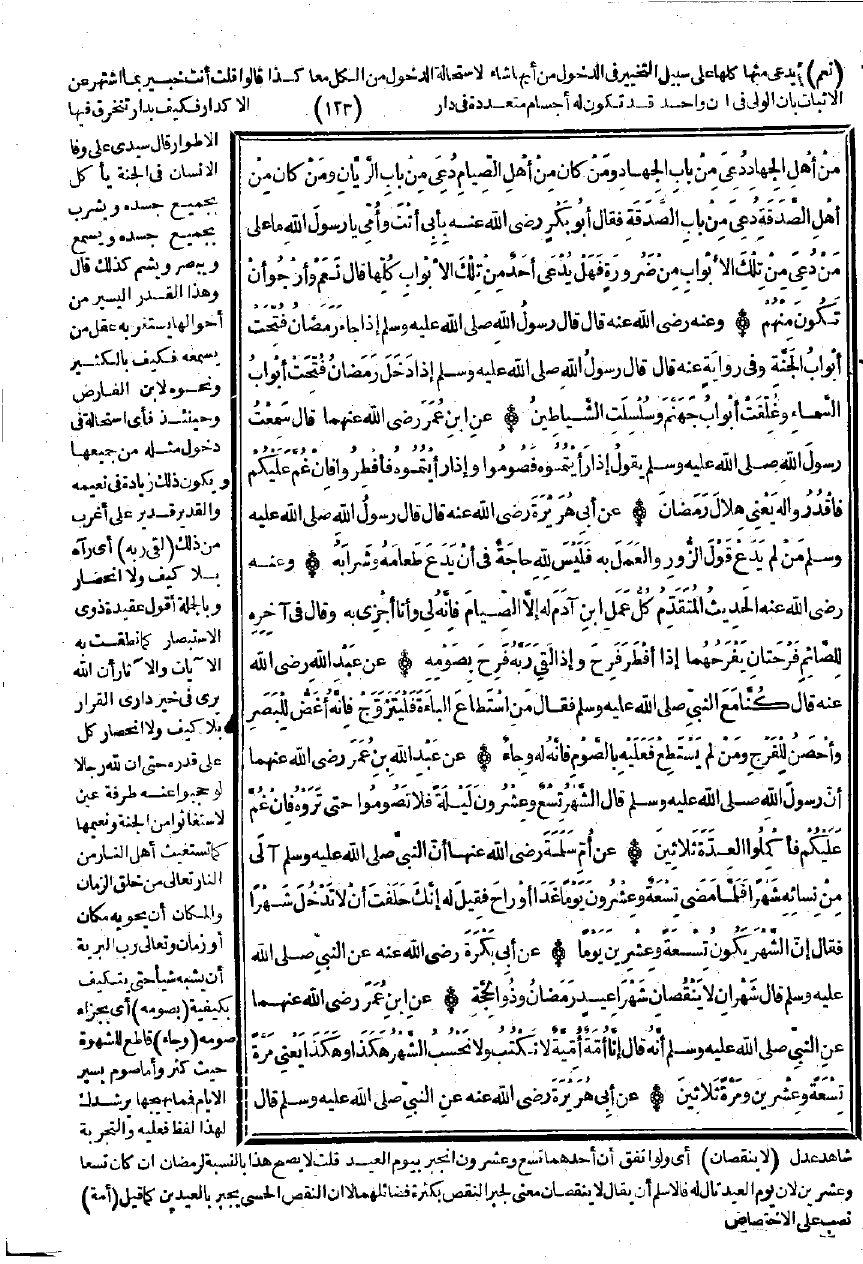 (نعم) يدعى منها كلها على سبيل التخيير فى الدخول من أيها شاء لاستحالة الدخول من الكل معا كذا قالوا قلت أنت خبير بما اشتهر عن
الاثبات بان الولى فى آن واحد قد تكون له أجسام متعددة فى دار
(١٢٣)
الاكدار فكيف بدار تنخرق فيها
مِنْ أهْلِ الجهادِ دُعِىَ مِنْ بابِ الجهادِ ومَنْ كانَ مِنْ أهْلِ الصِّيامِ دُعِىَ مِنْ بابِ الرَّيَّانِ ومَنْ كانَ مِنْ
أهْلِ الصَّدَقَةِ دُعِىَ مِنْ بابِ الصَّدَقَةِ فقال أبو بَكْرٍ رضى الله عنه بِأبى أنْتَ وأُمِّى يا رسولَ اللهِ ما على
مَنْ دُعِىَ مِنْ تِلْكَ الأَبْوابِ مِنْ ضَرُورَةٍ فَهَلْ يُدْعَى أحَدٌ مِنْ تِلْكَ الأَبْوابِ كُلِّها قال نَعَمْ وأرْجُو أنْ
تَكُونَ مِنْهُمْ ۞ وعنه رضى الله عنه قال قال رسولُ اللهِ صلى الله عليه وسلم إذا جاءَ رَمَضانُ فُتِحَتْ
أبْوابُ الجَنَّةِ وفى روايةٍ عنه قال قال رسولُ اللهِ صلى الله عليه وسلم إذا دَخَلَ رَمَضانُ فُتِحَتْ أبْوابُ
السَّماءِ وغُلِّقَتْ أبْوابُ جَهَنَّمَ وسُلْسِلَتِ الشَّياطِينُ ۞ عنِ ابنِ عُمَرَ رضى الله عنهما قال سَمِعْتُ
رسولَ اللهِ صلى الله عليه وسلم يقولُ إذا رَأَيْتُمُوهُ فَصُومُوا وإذا رَأَيْتُمُوهُ فأفْطِرُوا فانْ غُمَّ عليْكُمْ
فاقْدُرُوا له يَعْنِى هِلالَ رَمَضانَ ۞ عن أبى هُرَيْرَةَ رضى الله عنه قال قال رسولُ اللهِ صلى الله عليه
وسلم مَنْ لم يَدَعْ قَوْلَ الزُّورِ والعَمَلَ بهِ فَلَيْسَ للهِ حاجَةٌ فى أنْ يَدَعَ طَعامَهُ وشَرابَهُ ۞ وعنه
رضى الله عنه الحَدِيثُ المُتَقَدِّمُ كُلُّ عَمَلِ ابنِ آدَمَ له إلَّا الصِّيامَ فانَّهُ لى وأنا أجْزِى به وقال فى آخِرِهِ
للصَّائِمِ فَرْحَتانِ يَفْرَحُهُما إذا أفْطَرَ فَرِحَ وإذا لَقِىَ رَبَّهُ فَرِحَ بِصَوْمِهِ ۞ عن عَبْدِ اللهِ رضى الله
عنه قال كُنَّا مَعَ النبىِّ صلى الله عليه وسلم فقال مَنِ اسْتَطاعَ الباءَةَ فَلْيَتَزَوَّجْ فانَّهُ أغَضُّ لِلْبَصَرِ
وأحْصَنُ لِلْفَرْجِ ومَنْ لم يَسْتَطِعْ فَعَلَيْهِ بالصَّوْمِ فانَّهُ له وِجاءٌ ۞ عن عَبْدِ اللهِ بنِ عُمَرَ رضى الله عنهما
أنَّ رسولَ اللهِ صلى الله عليه وسلم قال الشَّهْرُ تِسْعٌ وعِشْرُونَ لَيْلَةً فلا تَصُومُوا حتى تَرَوْهُ فانْ غُمَّ
عَلَيْكُمْ فأكْمِلُوا العِدَّةَ ثَلاثِينَ ۞ عن أُمِّ سَلَمَةَ رضى الله عنها أنَّ النبىَّ صلى الله عليه وسلم آلَى
مِنْ نِسائِهِ شَهْرًا فَلَمَّا مَضَى تِسْعَةٌ وعِشْرُونَ يَوْمًا غَدا أوْ راحَ فقِيلَ له إنَّكَ حَلَفْتَ أنْ لا تَدْخُلَ شَهْرًا
فقال إنَّ الشَّهْرَ يَكُونُ تِسْعَةً وعِشْرِينَ يَوْمًا ۞ عن أبى بَكْرَةَ رضى الله عنه عن النبىِّ صلى الله
عليه وسلم قال شَهْرانِ لا يَنْقُصانِ شَهْرا عِيدٍ رَمَضانُ وذُو الحِجَّةِ ۞ عن ابنِ عُمَرَ رضى الله عنهما
عنِ النبىِّ صلى الله عليه وسلم أنَّه قال إنَّا أُمَّةٌ أُمِّيَّةٌ لا نَكْتُبُ ولا نَحْسُبُ الشَّهْرُ هكَذا وهكَذا يَعْنِى مَرَّةً
تِسْعَةً وعِشْرِينَ ومَرَّةً ثَلاثِينَ ۞ عن أبى هُرَيْرَةَ رضى الله عنه عنِ النبىِّ صلى الله عليه وسلم قال
الاطوار قال سيدى على وفا
الانسان فى الجنة يأكل
بجميع جسده ويشرب
بجميع جسده ويسمع
ويبصر ويشم كذلك قال
وهذا القدر اليسير من
أحوالها يستغربه عقل من
يسمعه فكيف بالكثير
ونحوه لابن الفارض
وحينئذ فأى استحالة فى
دخول مثله من جميعها
ويكون ذلك زيادة فى نعيمه
والقدير قدير على أغرب
من ذلك (لقى ربه) أى رآه
بلا كيف ولا انحصار
وبالجلة أقول عقيدة ذوى
الاستبصار كما نطقت به
الآيات والآثار أن الله
يرى فى خير دارى القرار
بلا كيف ولا انحصار كل
على قدره حتى ان لله رجالا
لو حجبوا عنه طرفة عين
لاستغاثوا من الجنة ونعيمها
كما تستغيث أهل النار من
النار تعالى من خلق الزمان
والمكان أن يحويه مكان
أو زمان وتعالى رب البرية
أن يشبه شيأ حتى يتكيف
بكيفية (بصومه) أى بجزاء
صومه (وجاء) قاطع للشهوة
حيث كثر وأما صوم يسير
الايام فمما يهيجها يرشدك
لهذا لفظ فعليه والتجربة
شاهد عدل (لا ينقصان) أى ولو اتفق أن أحدهما تسع وعشرون انجبر بيوم العيد قلت لا يصح هذا بالنسبة لرمضان ان كان تسعا
وعشرين لان يوم العيد تال له فالاسلم أن يقال لا ينقصان معنى لجبر النقص بكثرة فضائلهما لا ان النقص الحسى يجبر بالعيدين كما قيل (أمة)
نصب على الاختصاص